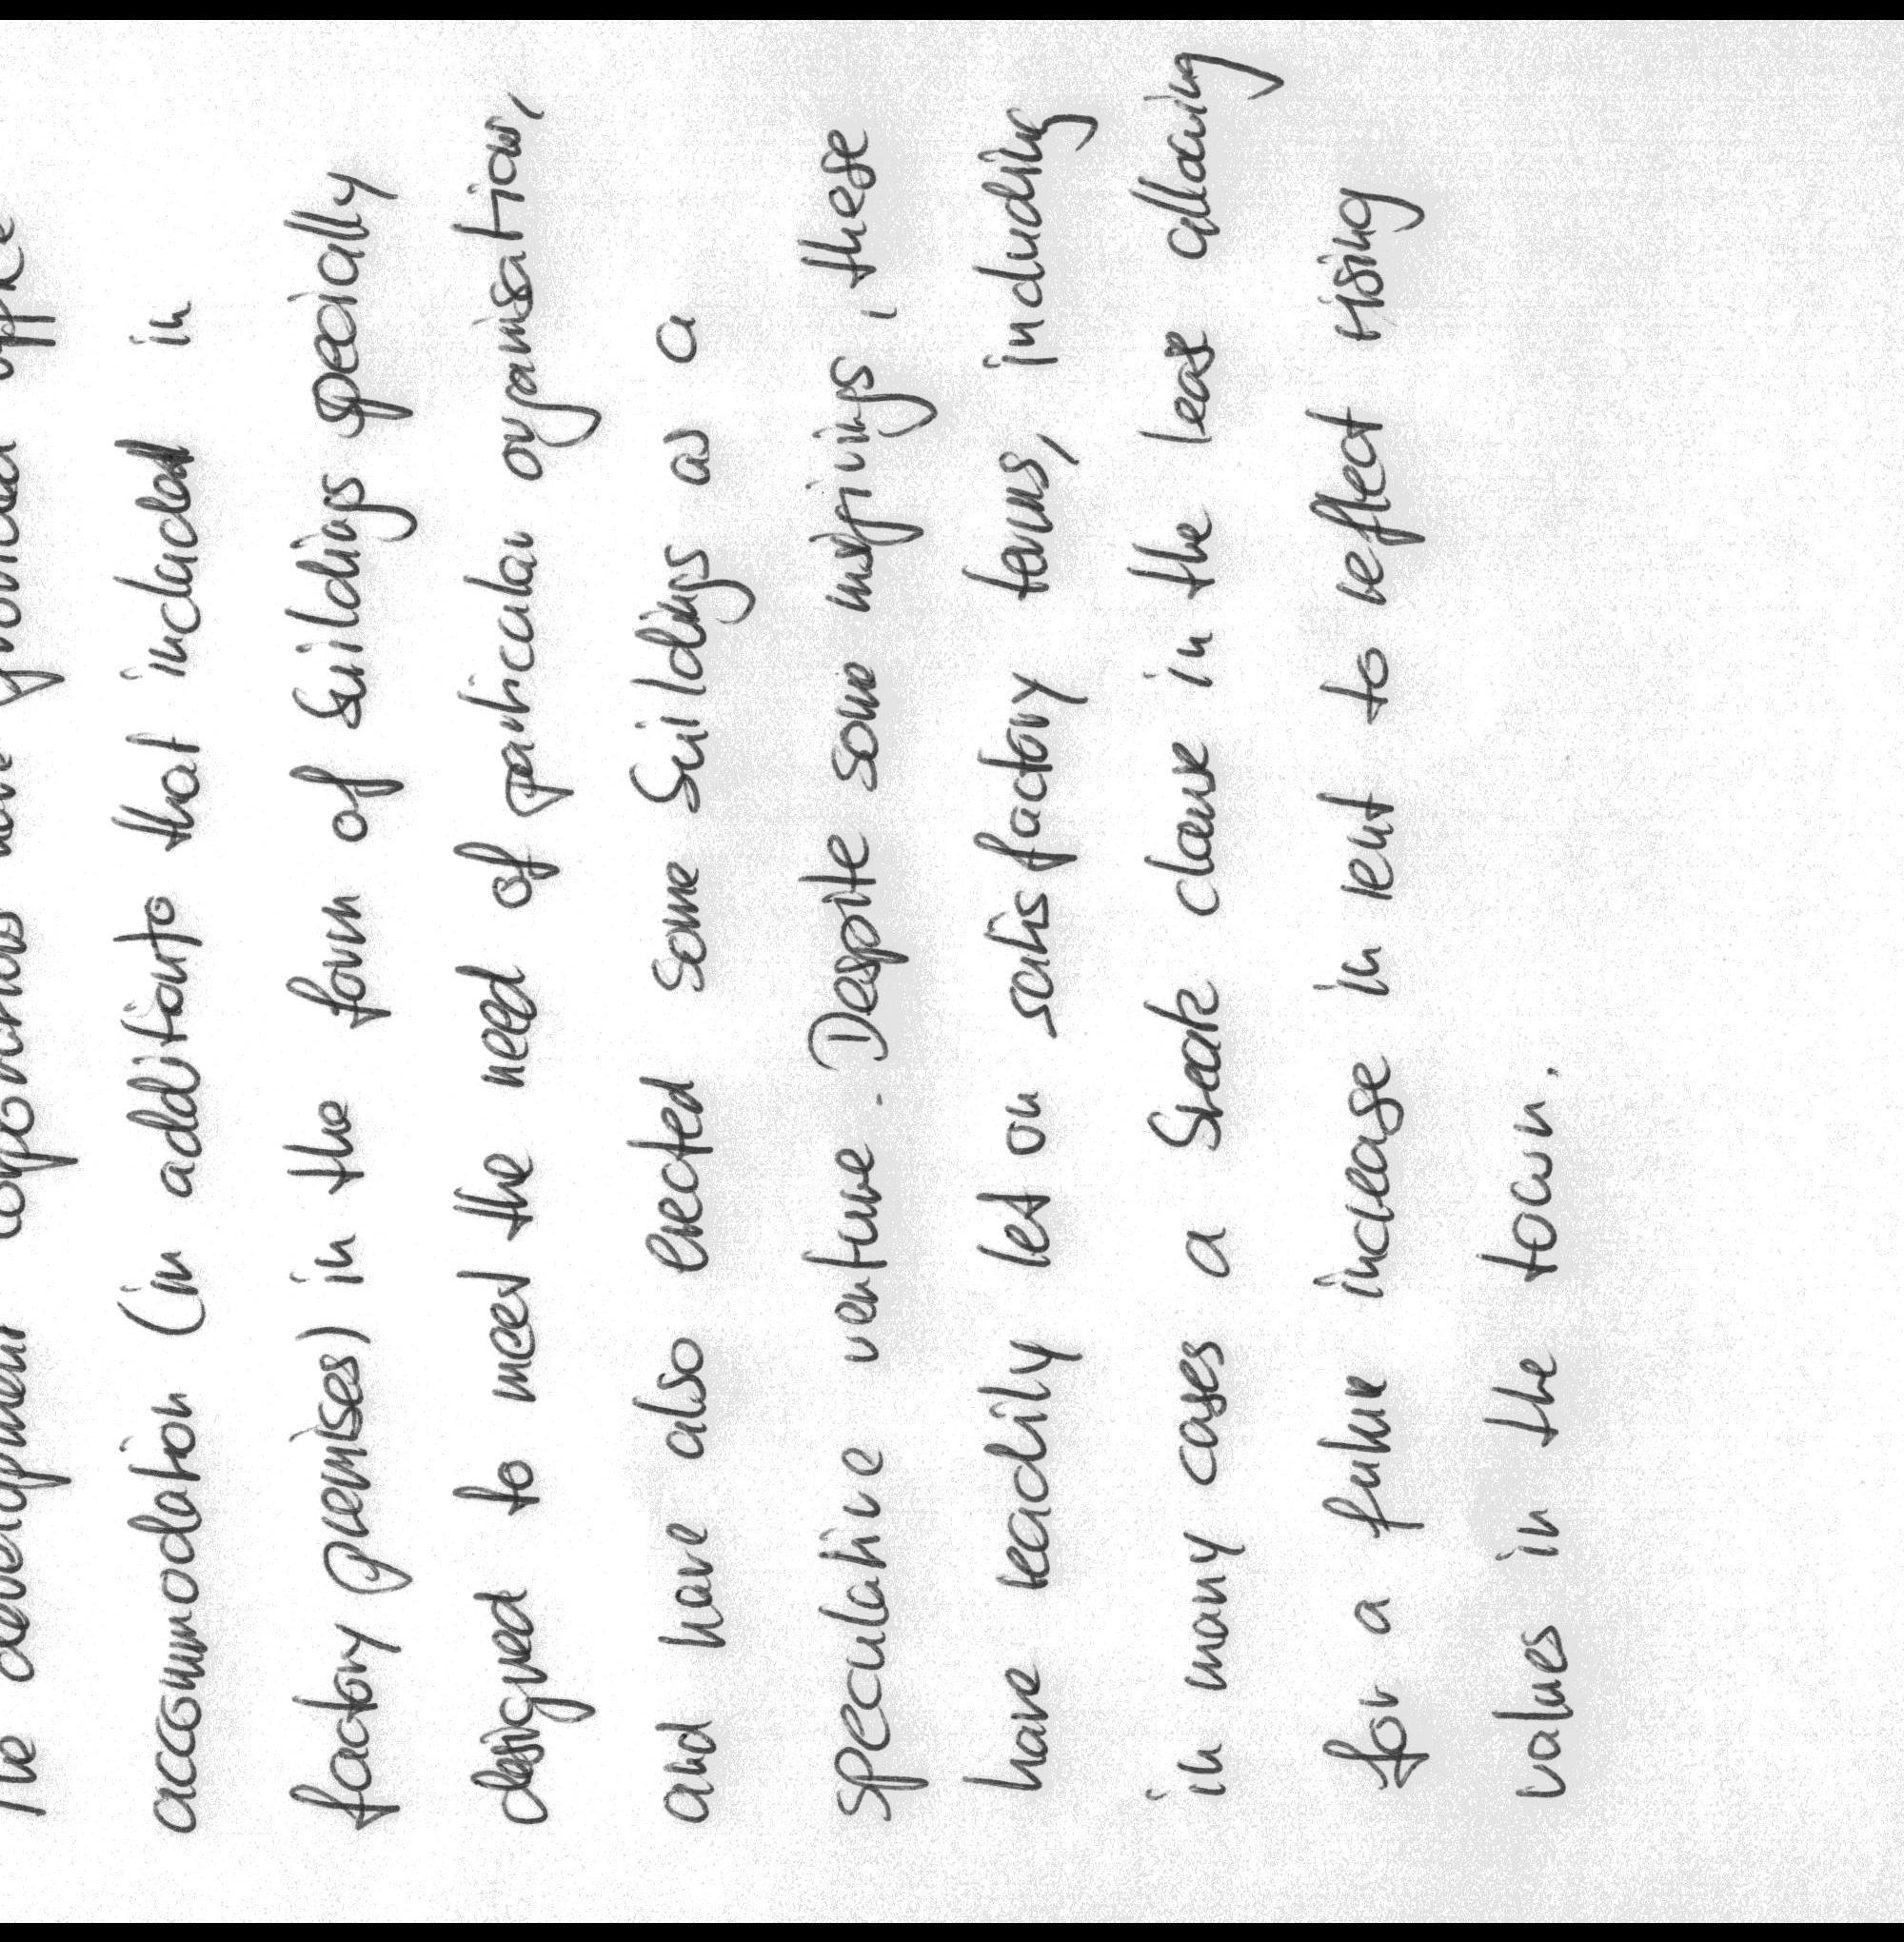 The development corporations have provided office
accommodation (in addition to that included in
factory premises) in the form of buildings specially
designed to meet the need of particular organisation,
and have also erected some buildings as a
speculative venture. Despite some misgivings, these
have readily let on satisfactory terms, including
in many cases a break clause in the lease allowing
for a future increase in rent to reflect rising
values in the town.